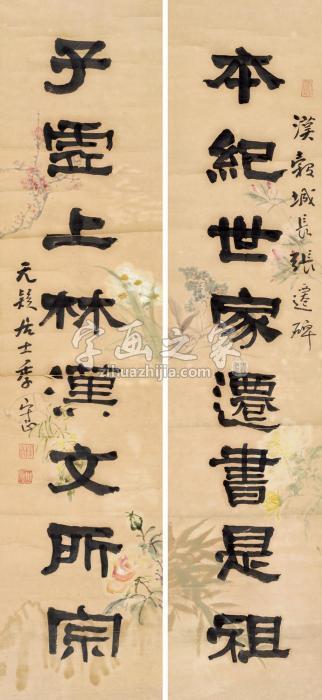 漢穀城長張遷碑
本紀世家遷書是祖
子虛上林漢文所宗
无疑居士季守正
字画之家
zihuazhijia.com